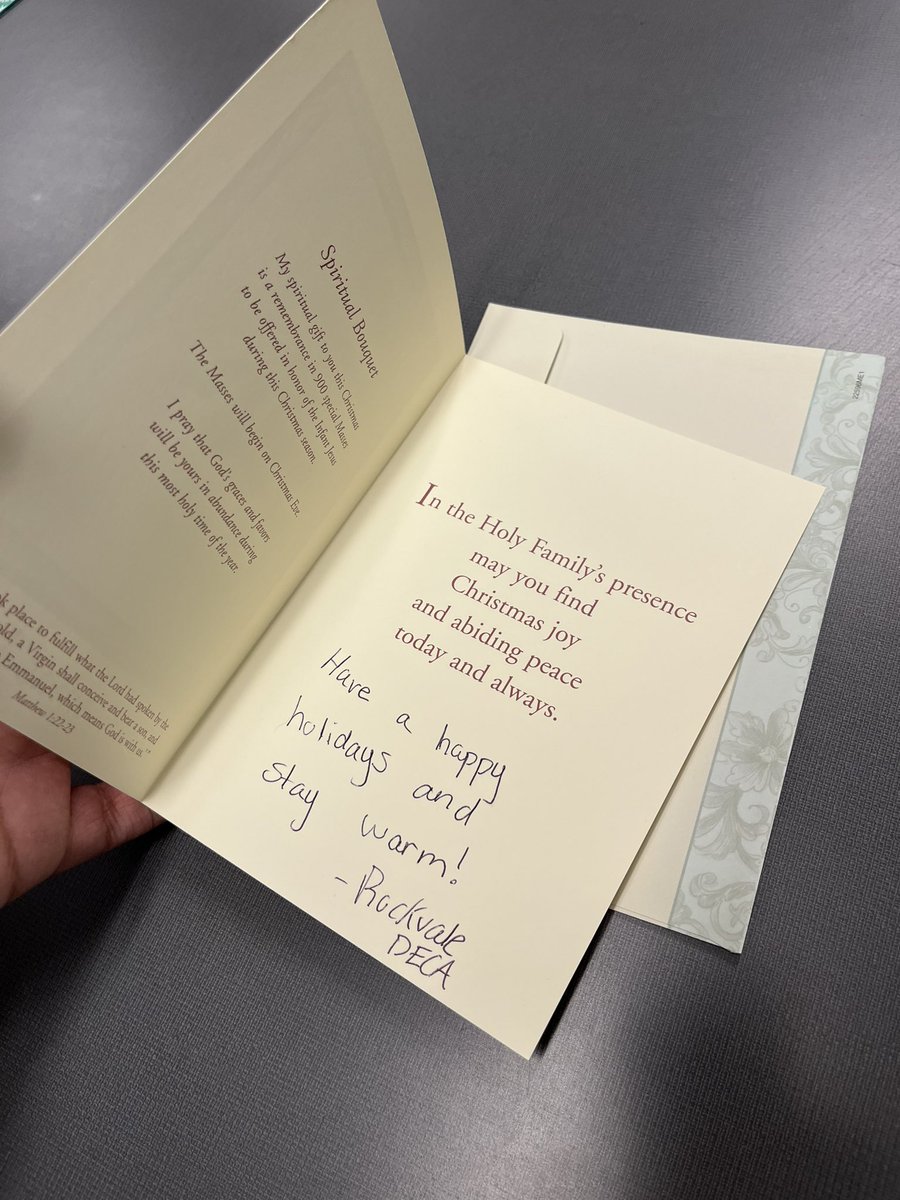 Spiritual Bouquet
My spiritual gift to you this Christmas
is a remembrance in 900 special Masses
to be offered in honor of the Infant Jesus
during this Christmas season.
The Masses will begin on Christmas Eve.
I pray that God's graces and favors
will be yours in abundance during
this most holy time of the year.
place to fulfill what the Lord had spoken by the
a Virgin shall conceive and bear a son, and
Emmanuel, which means God is with us."
Matthew 1:22-23
In the Holy Family's presence
may you find
Christmas joy
and abiding peace
today and always.
Have a happy
holidays and
stay warm!
-Rockvale
DECA